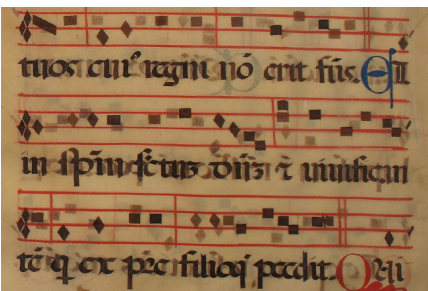 tuos cui᷒ regni nō erit fiīs. Et
in sp̄m sc̄tuz dn̄z ⁊ viuifican
tē q̄ ex pr̄e filioq̨ pcedit. Q i